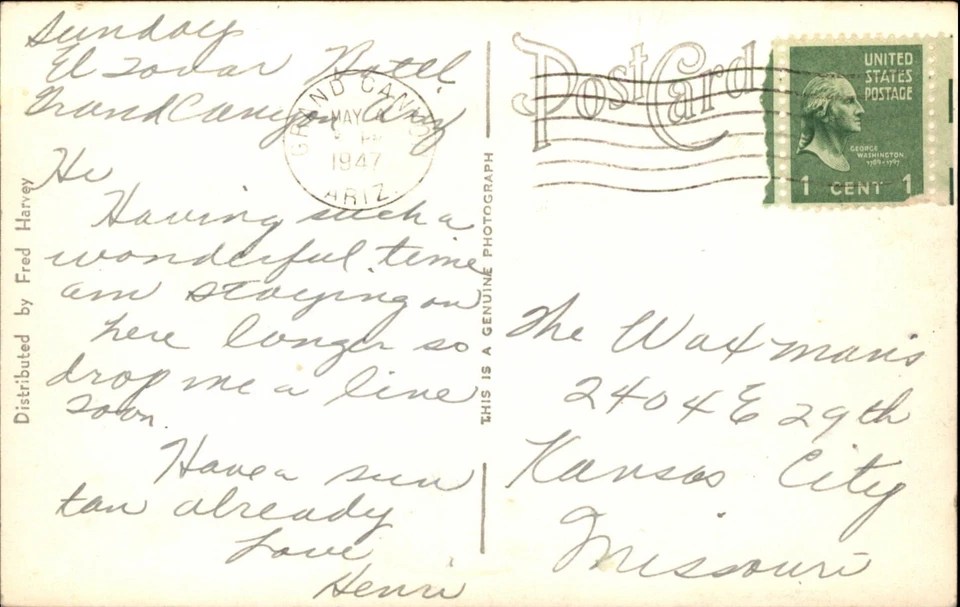 Sunday
El Tovar Hotel
Grand Canyon Ariz
Hi
Having such a
wonderful time
am staying on
here longer so
drop me a line
soon.
Have a sun
tan already
Love
Henri
Distributed by Fred Harvey
THIS IS A GENUINE PHOTOGRAPH
GRAND CANYON
MAY
PM
1947
ARIZ.
Post Card
UNITED
STATES
POSTAGE
GEORGE
WASHINGTON
1789-1797
1 CENT 1
The Waxman's
2404 E 29th
Kansas City
Missouri